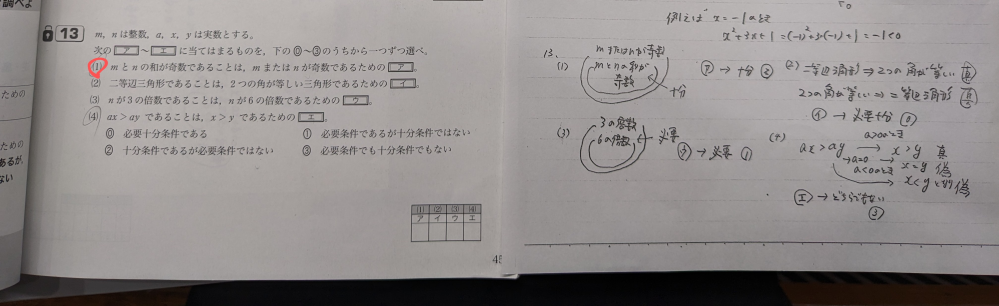 調べよ
13 m, n は整数, a, x, y は実数とする。
次の ア ～ エ に当てはまるものを, 下の⓪～③のうちから一つずつ選べ。
(1) mとnの和が奇数であることは, mまたはnが奇数であるための ア 。
(2) 二等辺三角形であることは, 2つの角が等しい三角形であるための イ 。
(3) nが3の倍数であることは, nが6の倍数であるための ウ 。
(4) ax>ay であることは, x>y であるための エ 。
⓪ 必要十分条件である ① 必要条件であるが十分条件ではない
② 十分条件であるが必要条件ではない ③ 必要十分条件でも十分条件でもない
(1) (2) (3) (4)
ア イ ウ エ
45
ための
ための
あるが,
ない
例えば x=-1のとき
x²+3x+1=(-1)²+3·(-1)+1=-1<0
13.
(1) mまたはnが奇数
mとnの和が
奇数
十分
ア→十分 ②
(2) 二等辺三角形⇒2つの角が等しい 真
2つの角が等しい⇒二等辺三角形 真
イ→必要十分 ⓪
(3) 3の倍数
6の倍数
必要
ウ→必要 ①
(4)
a>0のとき
ax>ay → x>y 真
→a=0 → x=y 偽
a<0のとき
x<y 偽
エ→どちらでもない
③